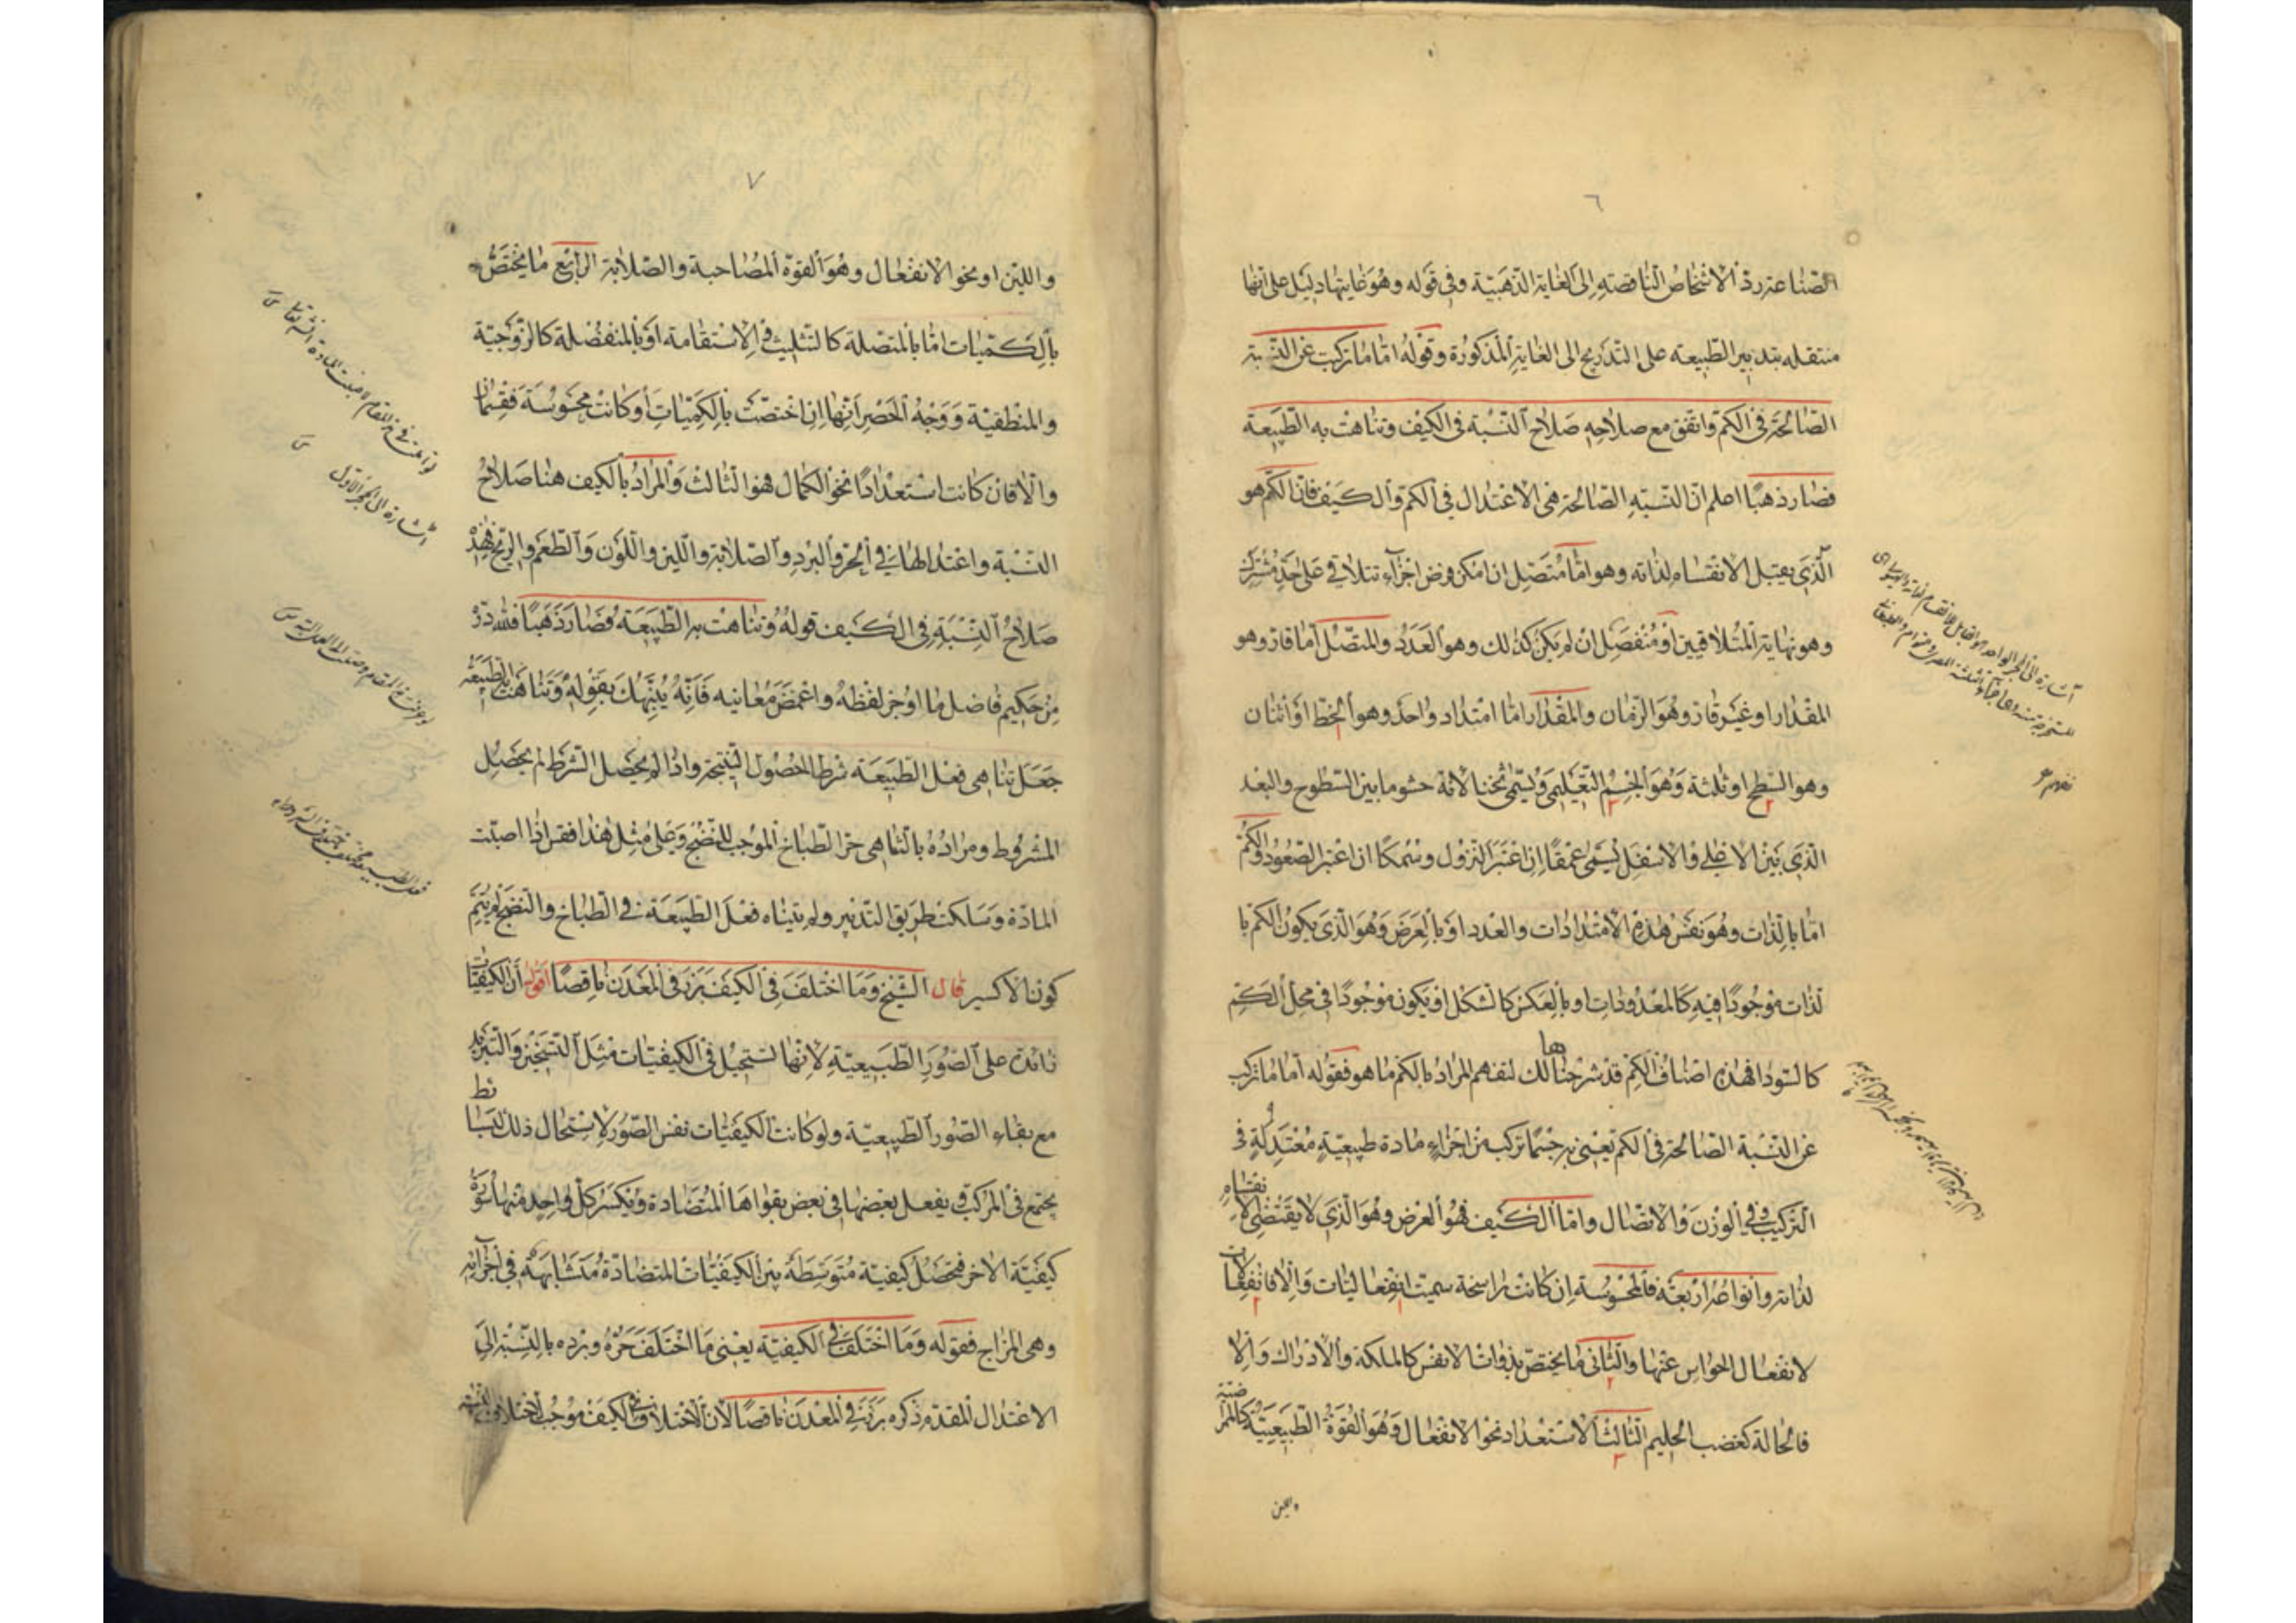 ٦
الصناعة ردّ الاشخاص الناقصة الى الغاية الذهبية وفى قوله وهو غايتها دليل على انها
منتقله بتدبير الطبيعه على التدريج الى الغاية المذكورة وقوله امّا ما تركب عن النسبة
الصالحة فى الكم واتفق مع صلاحه صلاح النسبة فى الكيف وتناهت به الطبيعة
فصار ذهبًا اعلم ان النسبة الصالحة هى الاعتدال فى الكم والكيف فان الكم هو
الذى يقبل الانقسام لذاته وهو امّا متصل ان امكن فرض اجزاء تتلاقى على حدّ مشترك
وهو نهاية المتلاقيين او منفصل ان لم يكن كذلك وهو العدد والمتصل امّا قارّ وهو
المقدار او غير قارّ وهو الزمان والمقدار امّا امتداد واحد وهو الخط او اثنان
وهو السطح او ثلثة وهو الجسم التعليمى ويسمّى ثخنا لانه حشو ما بين السطوح والبعد
الذى بين الاعلى والاسفل يسمّى عمقًا ان اعتبر النزول وسمكًا ان اعتبر الصعود والكم
امّا بالذات وهو نفس هذه الامتدادات والعدد او بالعرض وهو الذى يكون الكم با
لذات موجودًا فيه كالمعدودات او بالعكس كالشكل او يكون موجودًا فى محل الكم
كالسواد فهذه اصناف الكم قد شرحناها لك لتفهم المراد بالكم ما هو فقوله امّا ما تركب
عن النسبة الصالحة فى الكم يعنى به جسمًا تركب من اجزاء مادة طبيعية معتدلة فى
التركيب وفى الوزن والاتصال وامّا الكيف فهو العرض وهو الذى لا يقتضى الانقسام
لذاته وانواعه اربعة فالمحسوسة ان كانت راسخة سميت انفعاليات والا فانفعالات
لانفعال الحواس عنها والثانى ما يختص بذوات الانفس كالملكة والادراك والا
فالحالة كغضب الحليم الثالث الاستعداد نحو الانفعال وهو القوة الطبيعية كالممراضية
واللين
٧
واللين او نحو الانفعال وهو القوة المصاحبة والصلابة الرابع ما يختص
بالكميات امّا بالمتصلة كالتثليث فى الاستقامة او بالمنفصلة كالزوجية
والمنطقية ووجه الحصر انها ان اختصت بالكميات او كانت محسوسة فقسمان
والا فان كانت استعدادًا نحو الكمال فهو الثالث والمراد بالكيف هنا صلاح
النسبة واعتدالها فى الحرّ والبرد والصلابة واللين واللون والطعم والريح فهذه
صلاح النسبة فى الكيف قوله وتناهت به الطبيعة فصار ذهبًا فلله درّه
من حكيم فاضل ما اوجز لفظه واغمض معانيه فانّه ينبّهك بقوله وتناهت به الطبيعة
جعل تناهى فعل الطبيعة شرطا لحصول النتيجة واذا لم يحصل الشرط لم يحصل
المشروط ومراده بالتناهى حرّ الطباخ الموجب للنضج وعلى مثل هذا فقس اذا اصبت
المادّة وسلكت طريق التدبير ولم يتناه فعل الطبيعة فى الطباخ والنضج لم يتم
كون الاكسير قال الشيخ وما اختلف فى الكيف برز فى المعدن ناقصًا اقول أن الكيفيات
زائدة على الصور الطبيعية لانها تستحيل فى الكيفيات مثل التسخين والتبريد
مع بقاء الصور الطبيعية ولو كانت الكيفيات نفس الصور لاستحال ذلك
يجتمع فى المركب ويفعل بعضها فى بعض بقواها المتضادة ويكسر كل واحد منها سورة
كيفية الاخر فتحصل كيفية متوسطة بين الكيفيات المتضادة متشابهة فى اجزائه
وهى المزاج فقوله وما اختلف فى الكيفية يعنى ما اختلف حرّه وبرده بالنسبة الى
الاعتدال المقدم ذكره برز فى المعدن ناقصًا لان الاختلاف فى الكيف موجب لاختلاف